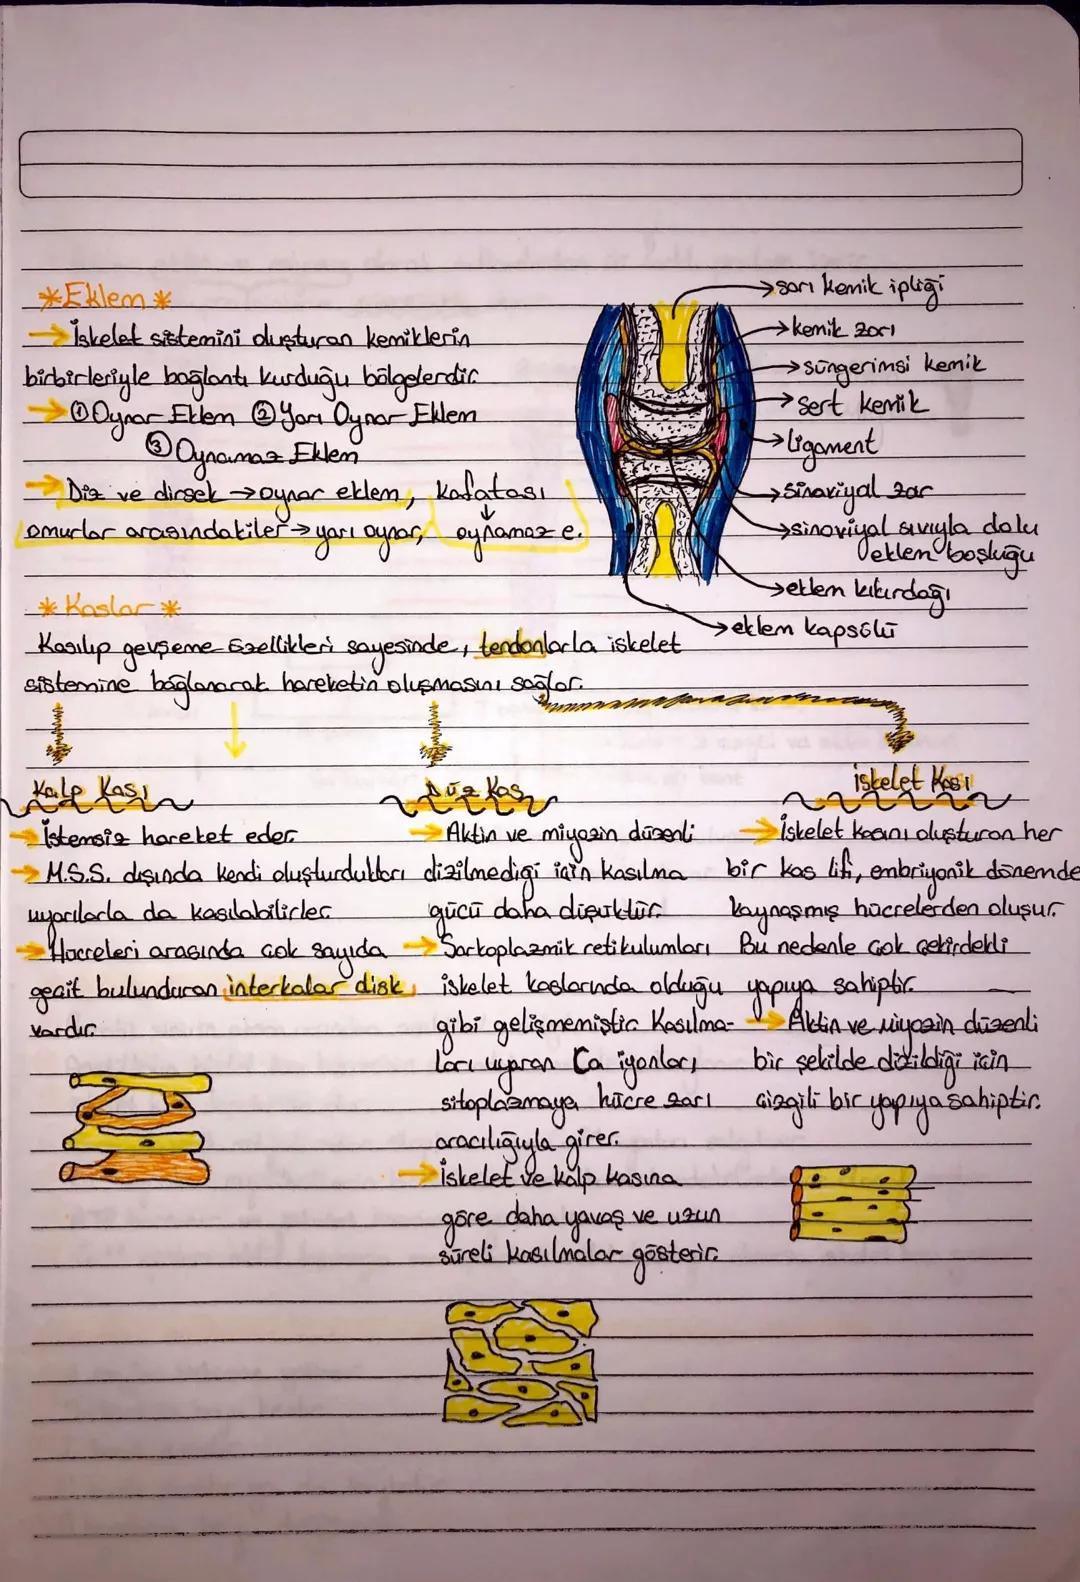 *Eklem*
→ İskelet sistemini oluşturan kemiklerin
birbirleriyle bağlantı kurduğu bölgelerdir.
→ ① Oynar Eklem ② Yarı Oynar Eklem
③ Oynamaz Eklem
→ Diz ve dirsek → oynar eklem, kafatası
↓
omurlar arasındakiler → yarı oynar, oynamaz e.
→ sarı kemik ipliği
→ kemik zarı
→ süngerimsi kemik
→ Sert kemik
→ Ligament
→ Sinoviyal zar
→ sinoviyal sıvıyla dolu
eklem boşluğu
→ eklem kıkırdağı
→ eklem kapsülü
*Kaslar*
Kasılıp gevşeme özellikleri sayesinde, tendonlarla iskelet
sistemine bağlanarak hareketin oluşmasını sağlar.
Kalp Kası
→ İstemsiz hareket eder.
→ M.S.S. dışında kendi oluşturdukları
uyarılarla da kasılabilirler.
→ Hücreleri arasında çok sayıda
geçit bulunduran interkalar disk
vardır.
Düz Kas
→ Aktin ve miyozin düzenli
dizilmediği için kasılma
gücü daha düşüktür.
→ Sarkoplazmik retikulumları
iskelet kaslarında olduğu
gibi gelişmemiştir. Kasılma-
ları uyaran Ca iyonları
sitoplazmaya hücre zarı
aracılığıyla girer.
→ İskelet ve kalp kasına
göre daha yavaş ve uzun
süreli kasılmalar gösterir.
İskelet Kası
→ İskelet kasını oluşturan her
bir kas lifi, embriyonik dönemde
kaynaşmış hücrelerden oluşur.
Bu nedenle çok çekirdekli
yapıya sahiptir.
→ Aktin ve miyozin düzenli
bir şekilde dizildiği için
çizgili bir yapıya sahiptir.